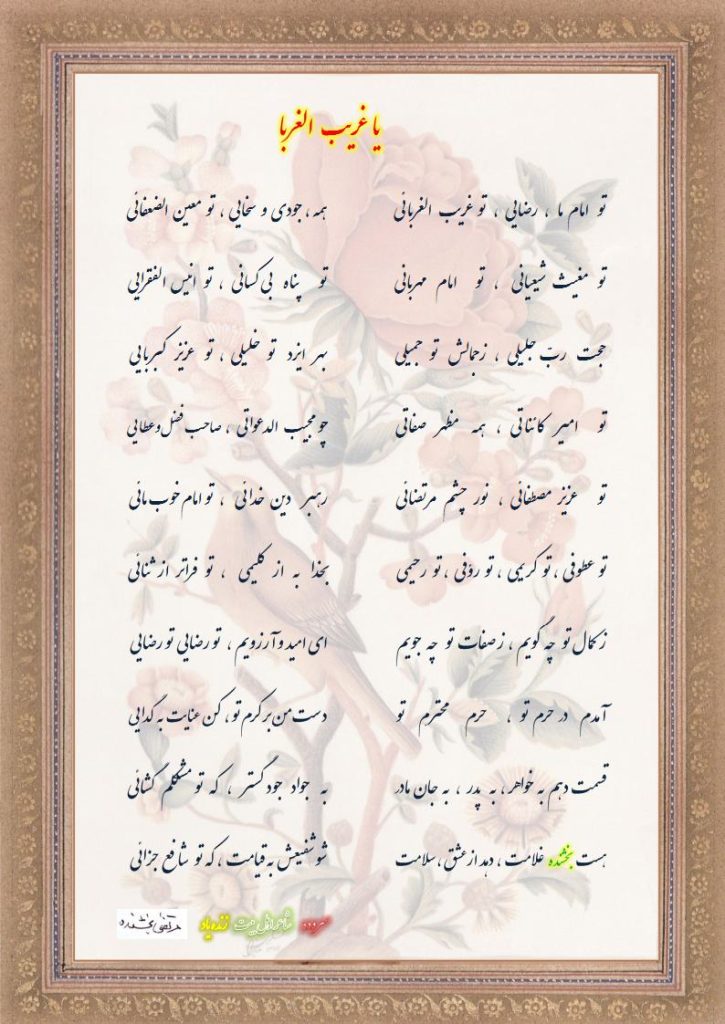 یا غریب الغربا
تو امام ما ، رضایی ، تو غریب الغربائی همه ، جودی و سخایی ، تو معین الضعفائی
تو مغیث شیعیانی ، تو امام مهربانی تو پناه بی کسانی ، تو انیس الفقرایی
حجت ربّ جلیلی ، ز جمالش تو جمیلی بهر ایزد تو خلیلی ، تو عزیز کبریایی
تو امیر کائناتی ، همه مظهر صفاتی چو مجیب الدعواتی ، صاحب فضل و عطایی
تو عزیز مصطفائی ، نور چشم مرتضائی رهبر دین خدائی ، تو امام خوب مائی
تو عطوفی ، تو کریمی ، تو رؤفی ، تو رحیمی بخدا به از کلیمی ، تو فراتر از ثنائی
ز کمال تو چه گویم ، ز صفات تو چه جویم ای امید و آرزویم ، تو رضایی تو رضایی
آمدم در حرم تو ، حرم محترم تو دست من بر کرم تو ، کن عنایت به گدایی
قسمت دهم به خواهر ، به پدر ، به جان مادر به جواد جود گستر ، که تو مشکلم گشائی
هست بخشنده غلامت ، دهد از عشق ، سلامت شو شفیعش به قیامت ، که تو شافع جزائی
سروده شاعر اهل بیت زنده یاد مرتضی بخشنده